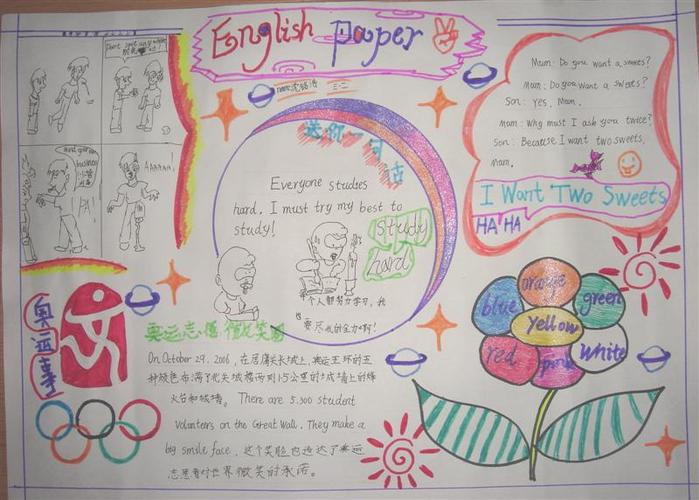 English Paper
Mum: Do you want a sweets?
Mum: Do you want a sweets?
Son: Yes, Mum.
Mum: Why must I ask you twice?
Son: Because I want two sweets,
Mum.
I Want Two Sweets
HA HA
送你一句话
Everyone studies
hard. I must try my best to
study!
study
hard
个人都努力学习, 我
也要尽我的全力啊!
AAAAA!
奥运志愿
On October 29, 2006, 在居庸关长城上, 奥运五环的五
种颜色布满了
火台和城墙。 There are 5,300 student
Volunteers on the Great Wall. They make a
big smile face, 这个笑脸也表达了奥运
志愿者对世界微笑的承诺。
orange
blue
green
yellow
red
pink
white